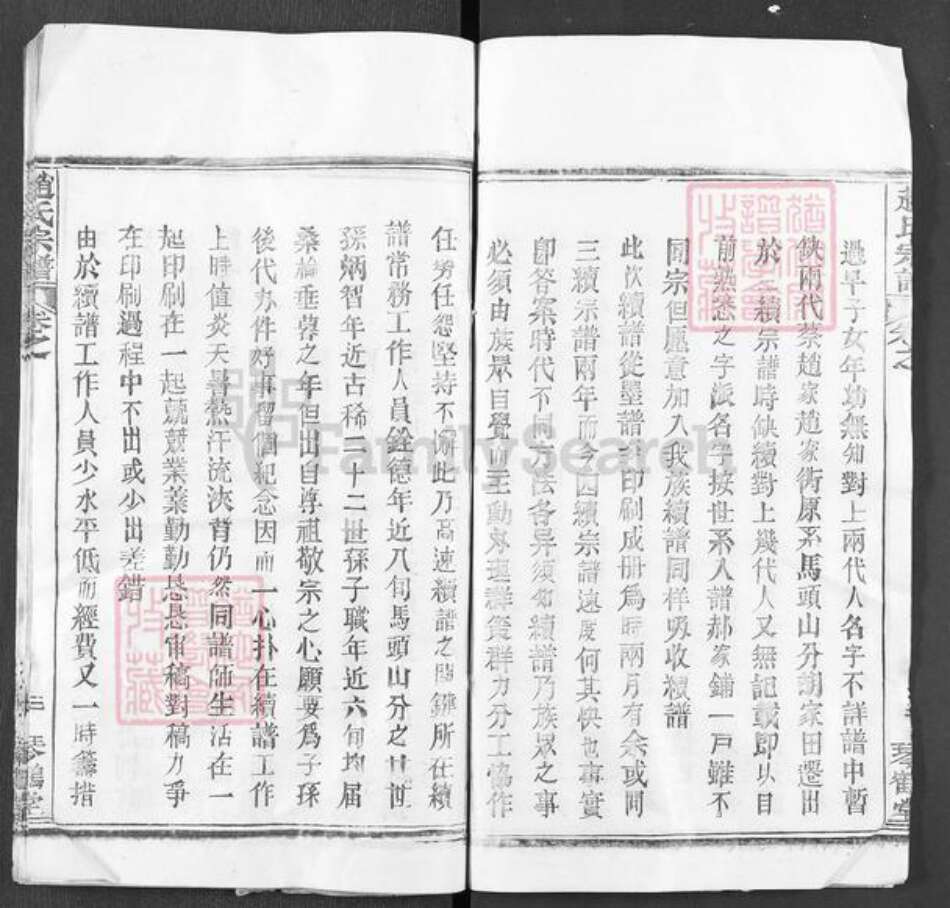 過早子女年幼無知對上兩代人名字不詳譜中暫
缺兩代蔡趙家趙家街原系馬頭山分胡家田遷出
於三續宗譜時缺續對上幾代人又無記載即以目
前熟悉之字派名字按世系入譜郝家鋪一戶雖不
同宗但愿意加入我族續譜同樣吸收續譜
此次續譜從墨譜詩印刷成册爲時兩月有余或問
三續宗譜兩年而今四續宗譜速度何其快也事實
即答案時代不同方法各异須知續譜乃族眾之事
必須由族眾自覺而主動办理群策群力分工協作
任勞任怨堅持不懈此乃高速續譜之関鍵所在續
譜常務工作人員銓德年近八旬馬頭山分之廿世
孫炳智年近古稀二十二世孫子職年近六旬均届
桑榆垂暮之年但出自尊祖敬宗之心願要爲子孫
後代办件好事留個紀念因而一心扑在續譜工作
上時值炎天暑熱汗流浹背仍然同譜師生活在一
起印刷在一起兢兢業業勤勤恳恳审稿對稿力爭
在印刷過程中不出或少出差錯
由於續譜工作人員少水平低而經費又一時籌措
趙氏宗譜
卷之
琴鶴堂
FamilySearch